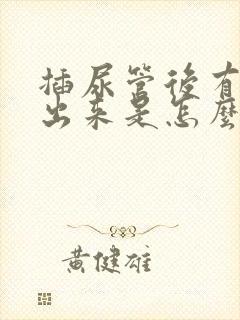 插尿管後有
出来是怎麼
黃健雄